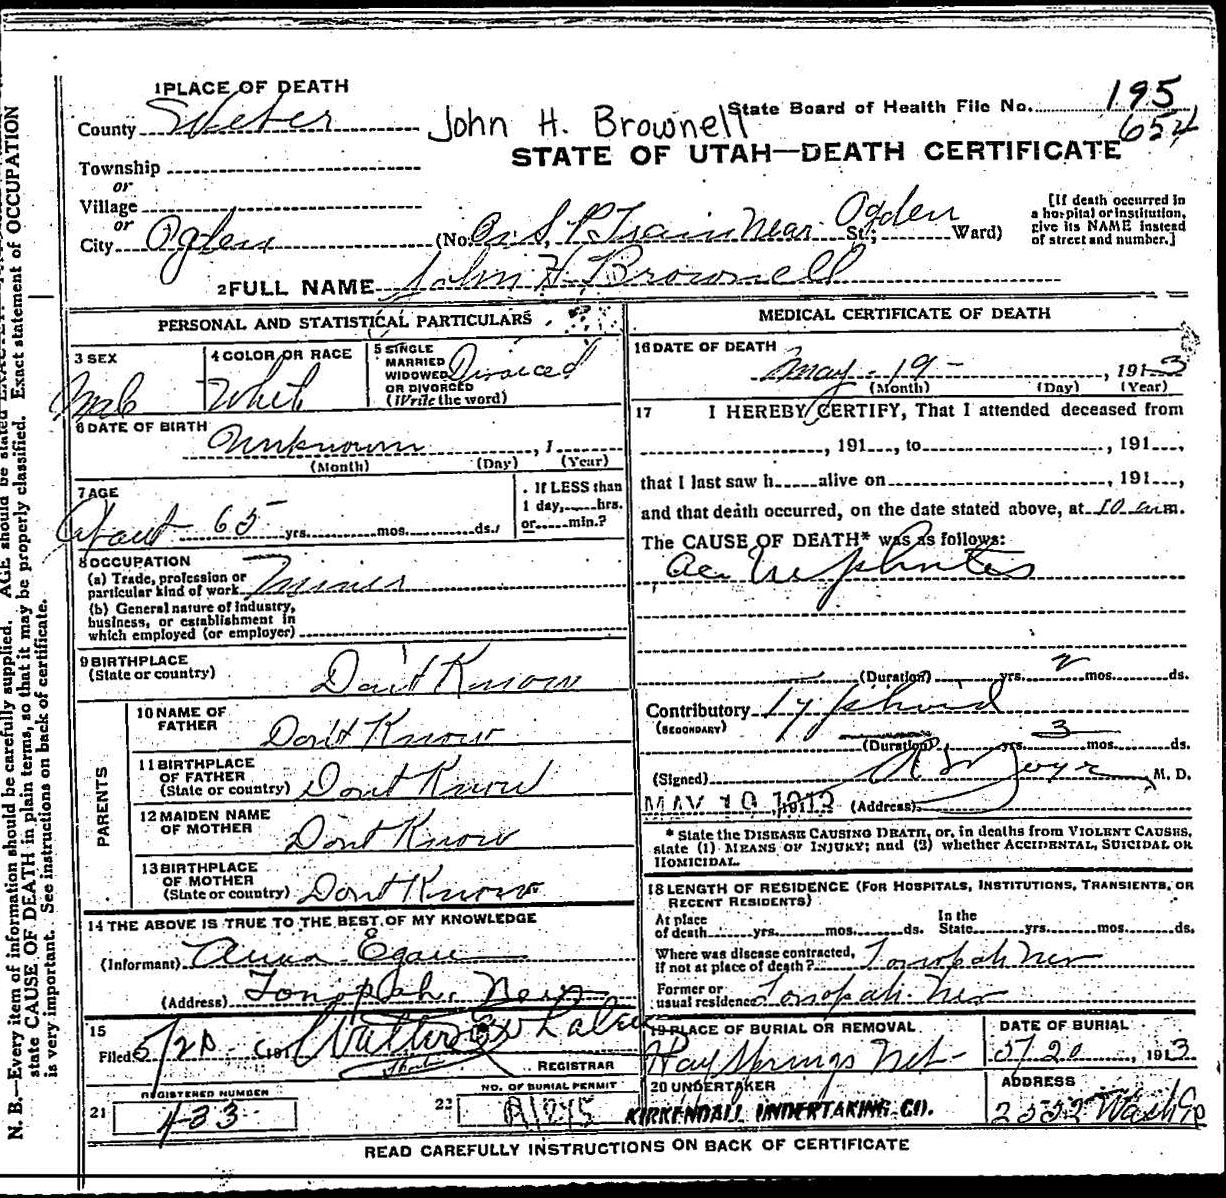 1 PLACE OF DEATH
County Weber
John H. Brownell
State Board of Health File No. 195
654
STATE OF UTAH—DEATH CERTIFICATE
Township
or
Village
or
City Ogden (No. On S. P. Train Near Ogden St.; Ward)
[If death occurred in
a hospital or institution,
give its NAME instead
of street and number.]
2 FULL NAME John H. Brownell
PERSONAL AND STATISTICAL PARTICULARS
3 SEX
Male
4 COLOR OR RACE
White
5 SINGLE
MARRIED
WIDOWED
OR DIVORCED
(Write the word)
Divorced
6 DATE OF BIRTH
Unknown, 1
(Month) (Day) (Year)
7 AGE
About 65 yrs. mos. ds.
If LESS than
1 day, hrs.
or min.?
8 OCCUPATION
(a) Trade, profession or
particular kind of work Miner
(b) General nature of industry,
business, or establishment in
which employed (or employer)
9 BIRTHPLACE
(State or country) Dont Know
PARENTS
10 NAME OF
FATHER Dont Know
11 BIRTHPLACE
OF FATHER
(State or country) Dont Know
12 MAIDEN NAME
OF MOTHER Dont Know
13 BIRTHPLACE
OF MOTHER
(State or country) Dont Know
14 THE ABOVE IS TRUE TO THE BEST OF MY KNOWLEDGE
(Informant) Anna Egan
(Address) Tonopah, Nev
15
Filed 5/20 191 Walter
REGISTRAR
REGISTERED NUMBER
21 433
NO. OF BURIAL PERMIT
22 A1245
MEDICAL CERTIFICATE OF DEATH
16 DATE OF DEATH
May 19 , 1913
(Month) (Day) (Year)
17 I HEREBY CERTIFY, That I attended deceased from
, 191 , to , 191 ,
that I last saw h alive on , 191 ,
and that death occurred, on the date stated above, at 10 a.m.
The CAUSE OF DEATH* was as follows:
Ac. Nephritis
(Duration) yrs. 2 mos. ds.
Contributory Typhoid
(SECONDARY)
(Duration) yrs. 3 mos. ds.
(Signed) M. D.
MAY 19 1913 191 (Address)
* State the DISEASE CAUSING DEATH, or, in deaths from VIOLENT CAUSES,
state (1) MEANS OF INJURY; and (2) whether ACCIDENTAL, SUICIDAL OR
HOMICIDAL.
18 LENGTH OF RESIDENCE (FOR HOSPITALS, INSTITUTIONS, TRANSIENTS, OR
RECENT RESIDENTS)
At place
of death yrs. mos. ds.
In the
State yrs. mos. ds.
Where was disease contracted,
if not at place of death? Tonopah Nev
Former or
usual residence Tonopah Nev
19 PLACE OF BURIAL OR REMOVAL
Hay Springs Neb
DATE OF BURIAL
5/20, 1913
20 UNDERTAKER
KIRKENDALL UNDERTAKING CO.
ADDRESS
2552 Wash
READ CAREFULLY INSTRUCTIONS ON BACK OF CERTIFICATE
N. B.—Every item of information should be carefully supplied. AGE should be stated EXACTLY.
state CAUSE OF DEATH in plain terms, so that it may be properly classified. Exact statement of OCCUPATION
is very important. See instructions on back of certificate.